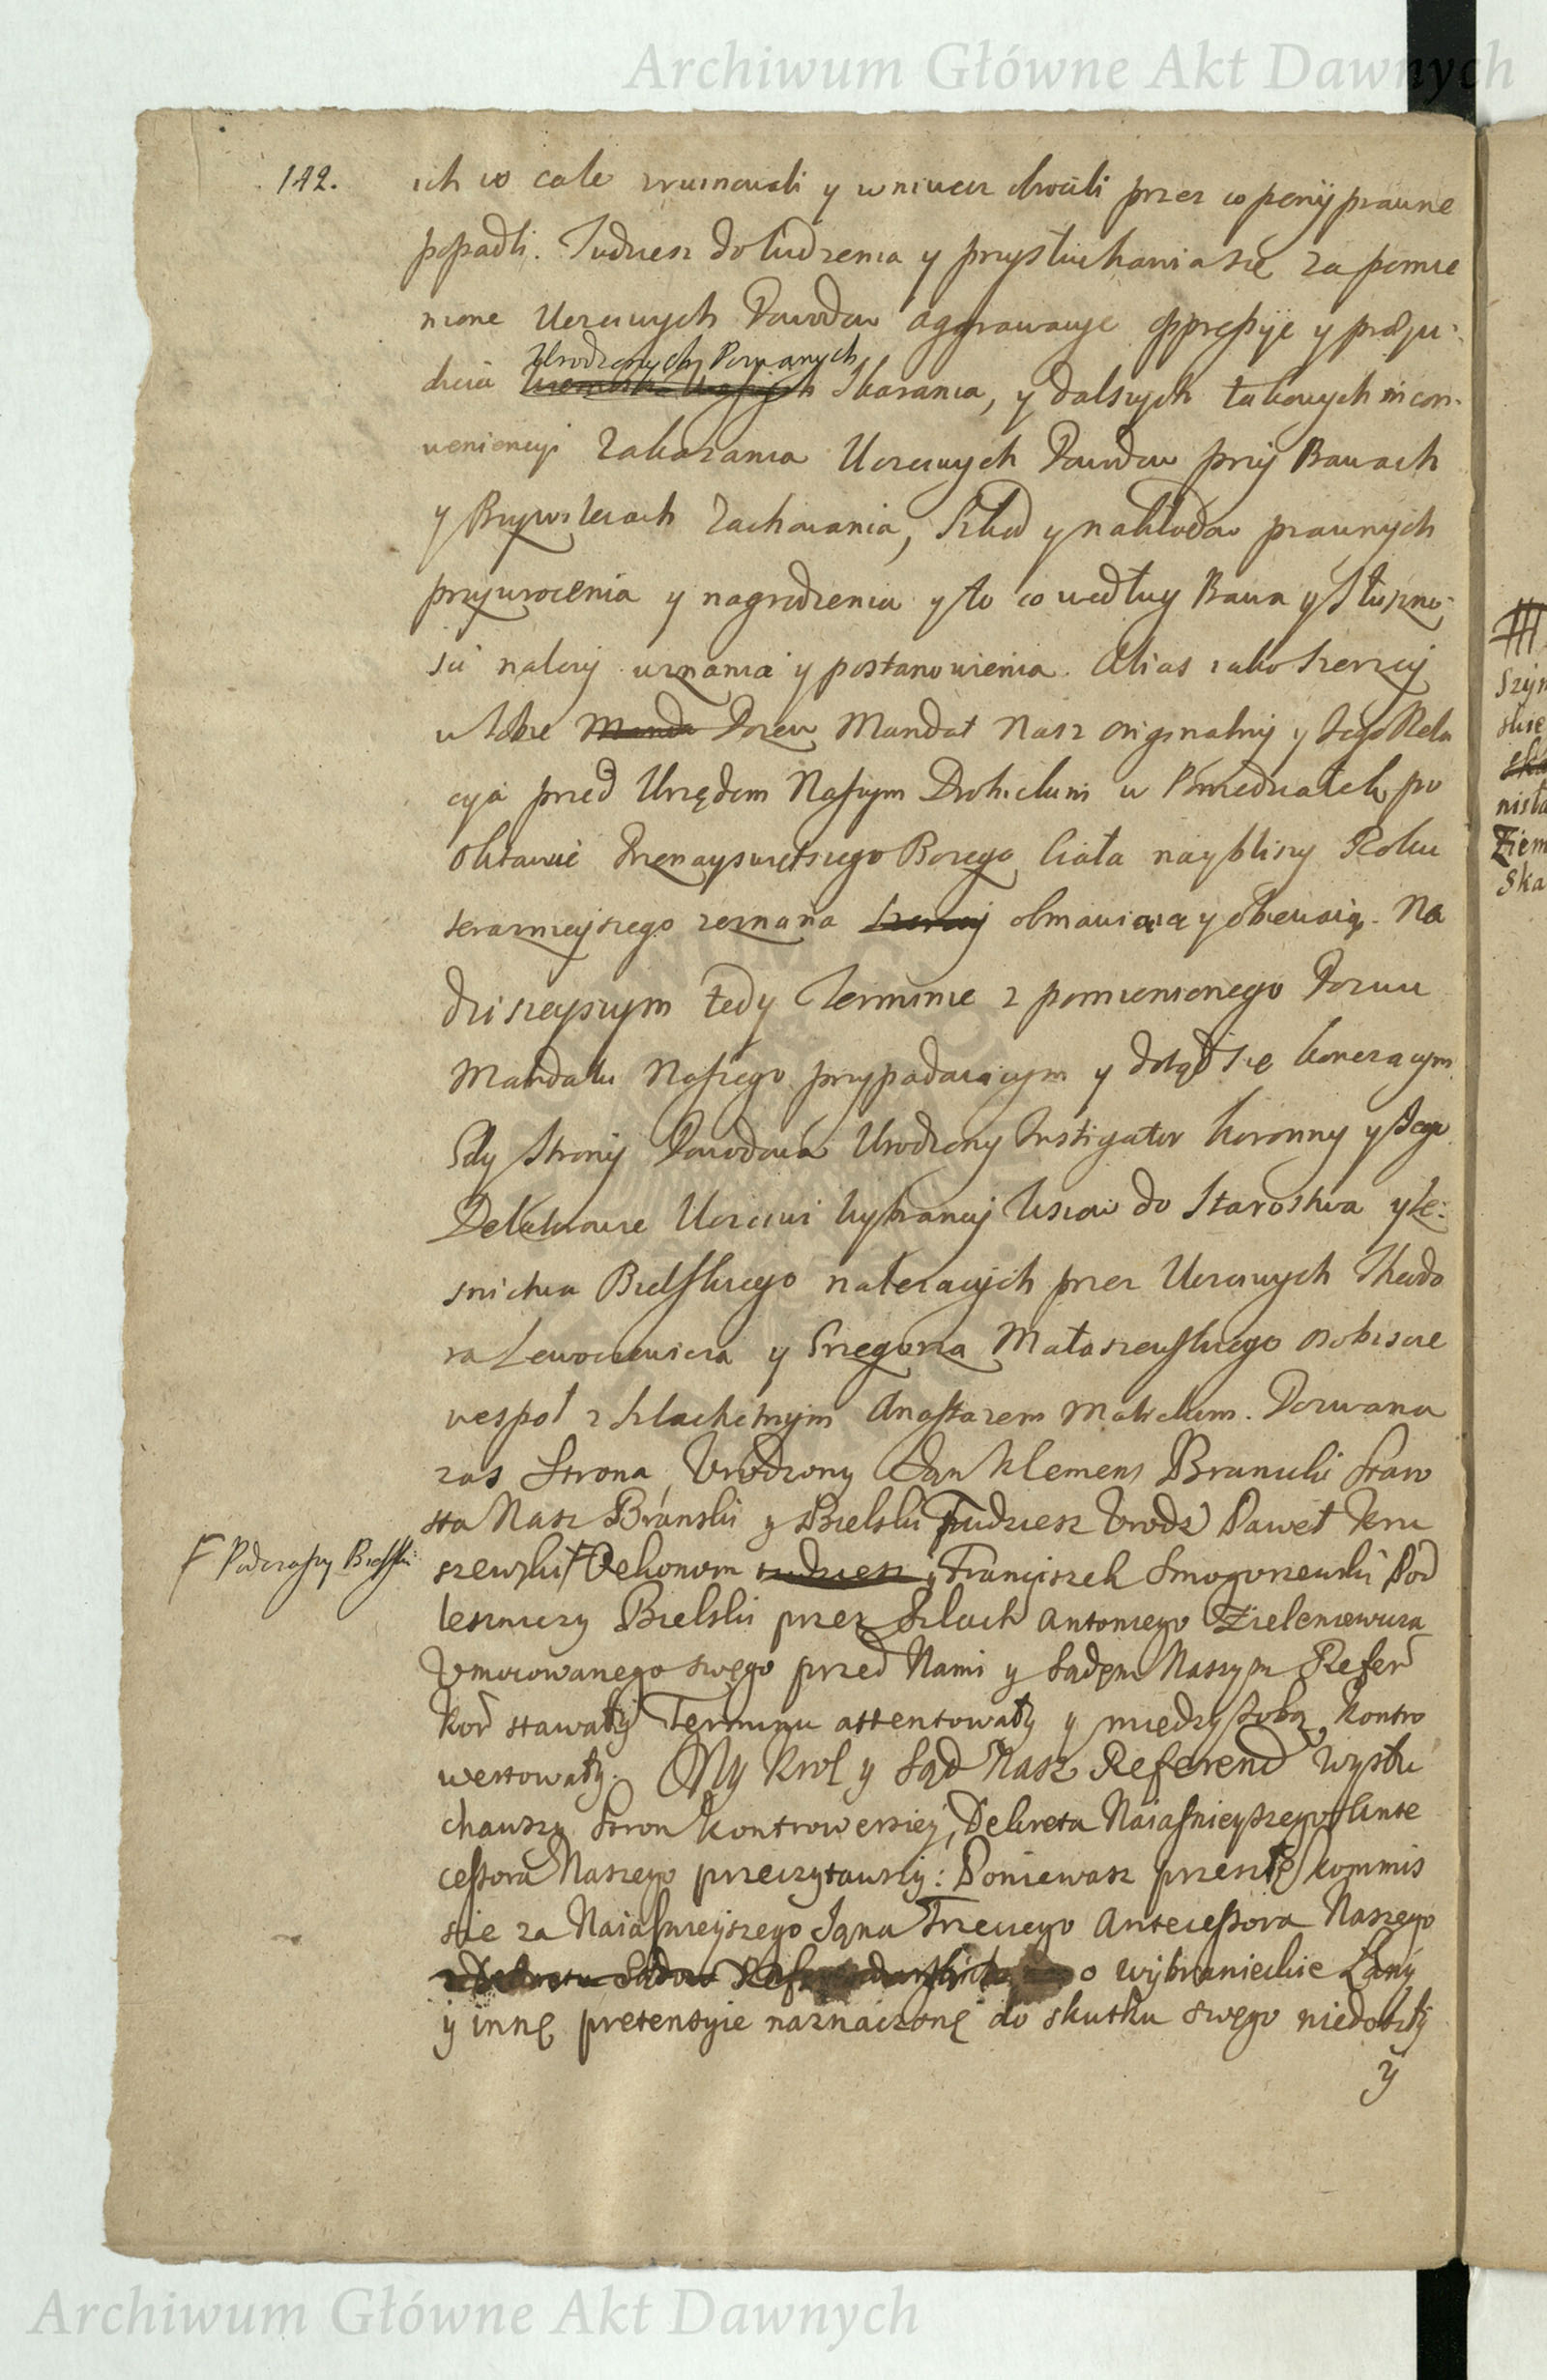 Archiwum Główne Akt Dawnych
142.
ich w cale zruinowali y w niwecz obrocili przez co peny prawne
popadli. Tudziesz do widzenia y przysłuchania się za pomie
nione Uczciwych Powodow aggrawacye oppressye y præju-
dicia Urodzonych Pozwanych skarania, y dalszych takowych incon-
veniencyi zakazania Uczciwych Powodow przy Prawach
y Przywileiach zachowania, szkod y nakładow prawnych
przywrocenia y nagrodzenia y to co według Prawa y słuszno-
sci nalezy uznania y postanowienia. Alias iako szerzey
w sobie Manda Pozew Mandat Nasz originalny y Jego Rela
cya przed Urzędem Naszym Drohickim w Poniedziałek po
oktawie Przenayswiętszego Bozego Ciała naybliszy Roku
terazniejszego zeznana szerzey obmawiaią y obiecaią. Na
dzisieyszym tedy Terminie z pomienionego Pozwu
Mandatu Naszego przypadaiącym y dotąd się konczącym
Gdy Strony Powodowa Urodzony Instigator Koronny y Jego
Delatorowie Uczciwi Wybrancy Wsiow do Starostwa y Le-
snictwa Bielskiego nalezących przez Uczciwych Theodo
ra Lewoczewicza y Grzegorza Matoszewskiego osobiscie
wespoł z Szlachetnym Anastazem Malickim. Pozwana
zas Strona Urodzony Jan Klemens Branicki Staro
sta Nasz Branski y Bielski Tudziesz Urodz Paweł Kru
F Podczaszy Bielski
szewski F Oekonom tudziesz y Franciszek Smogorzewski Pod
lesniczy Bielski przez Szlach Antoniego Zieleniewicza
Umocowanego swego przed Nami y Sądem Naszym Refer
Kor stawały Terminu attentowały y między sobą Kontro
wertowały. My Krol y Sąd Nasz Referend Wysłu
chawszy Stron kontrowersiey, Dekreta Naiasnieyszego Ante
cessora Naszego przeczytawszy: Poniewasz przeszłe Kommis
sie za Naiasnieyszego Jana Trzeciego Antecessora Naszego
z Dekretu Sądow Referendarskich o wybranieckie Łany
y inne pretensyie naznaczone do skutku swego niedoszły
y
Szyn
nisła
Ziem
Ska
Archiwum Główne Akt Dawnych